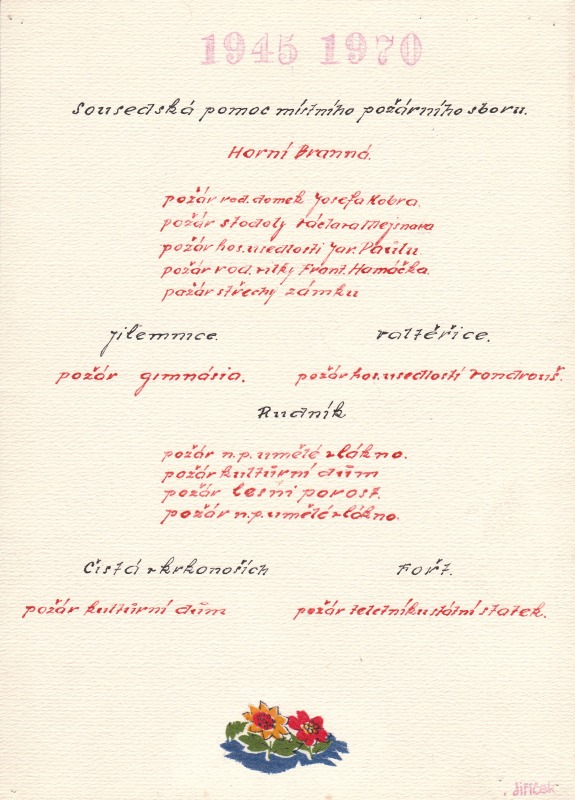 1945 1970
Sousedská pomoc místního požárního sboru.
Horní Branná.
požár rod. domek Josefa Kobra
požár stodoly Václava Mejsnara
požár hos. usedlosti Jar. Paulu
požár rod. vilky Frant. Hamáčka.
požár střechy zámku
Jilemnice. Valtěřice.
požár gimnásia. požár hos. usedlosti Vondrouš.
Rudník
požár n.p. umělé vlákno.
požár kulturní dům
požár lesní porost.
požár n.p. umělé vlákno.
Čistá v Krkonoších Fořt.
požár kulturní dům požár teletníku státní statek.
Jiříček